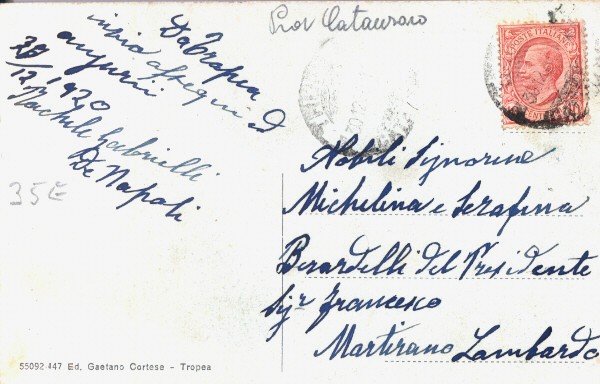 Prov Catanzaro
Da Tropea
invia ossequi ed
auguri
30/12 1920
Rachele Gabrielli
De Napoli
35€
POSTE ITALIANE
10
Nobili Signorine
Michelina e Serafina
Berardelli del Presidente
Sigr Francesco
Martirano Lombardo
55092 447 Ed. Gaetano Cortese - Tropea